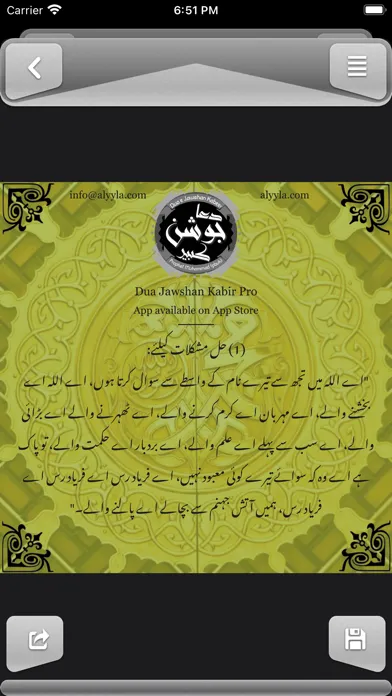 Carrier
6:51 PM
info@alyyla.com
alyyla.com
دعا
جوشن
کبیر
Dua Jawshan Kabir Pro
App available on App Store
(1) حل مشکلات کیلئے:
"اے اللہ میں تجھ سے تیرے نام کے واسطے سے سوال کرتا ہوں، اے اللہ اے
بخشنے والے، اے مہربان اے کرم کرنے والے، اے ٹھہرنے والے اے بڑائی
والے، اے سب سے پہلے اے علم والے، اے بردبار اے حکمت والے، تو پاک
ہے اے وہ کہ سوائے تیرے کوئی معبود نہیں، اے فریاد رس اے فریاد رس اے
فریاد رس، ہمیں آتش جہنم سے بچالے اے پالنے والے۔"